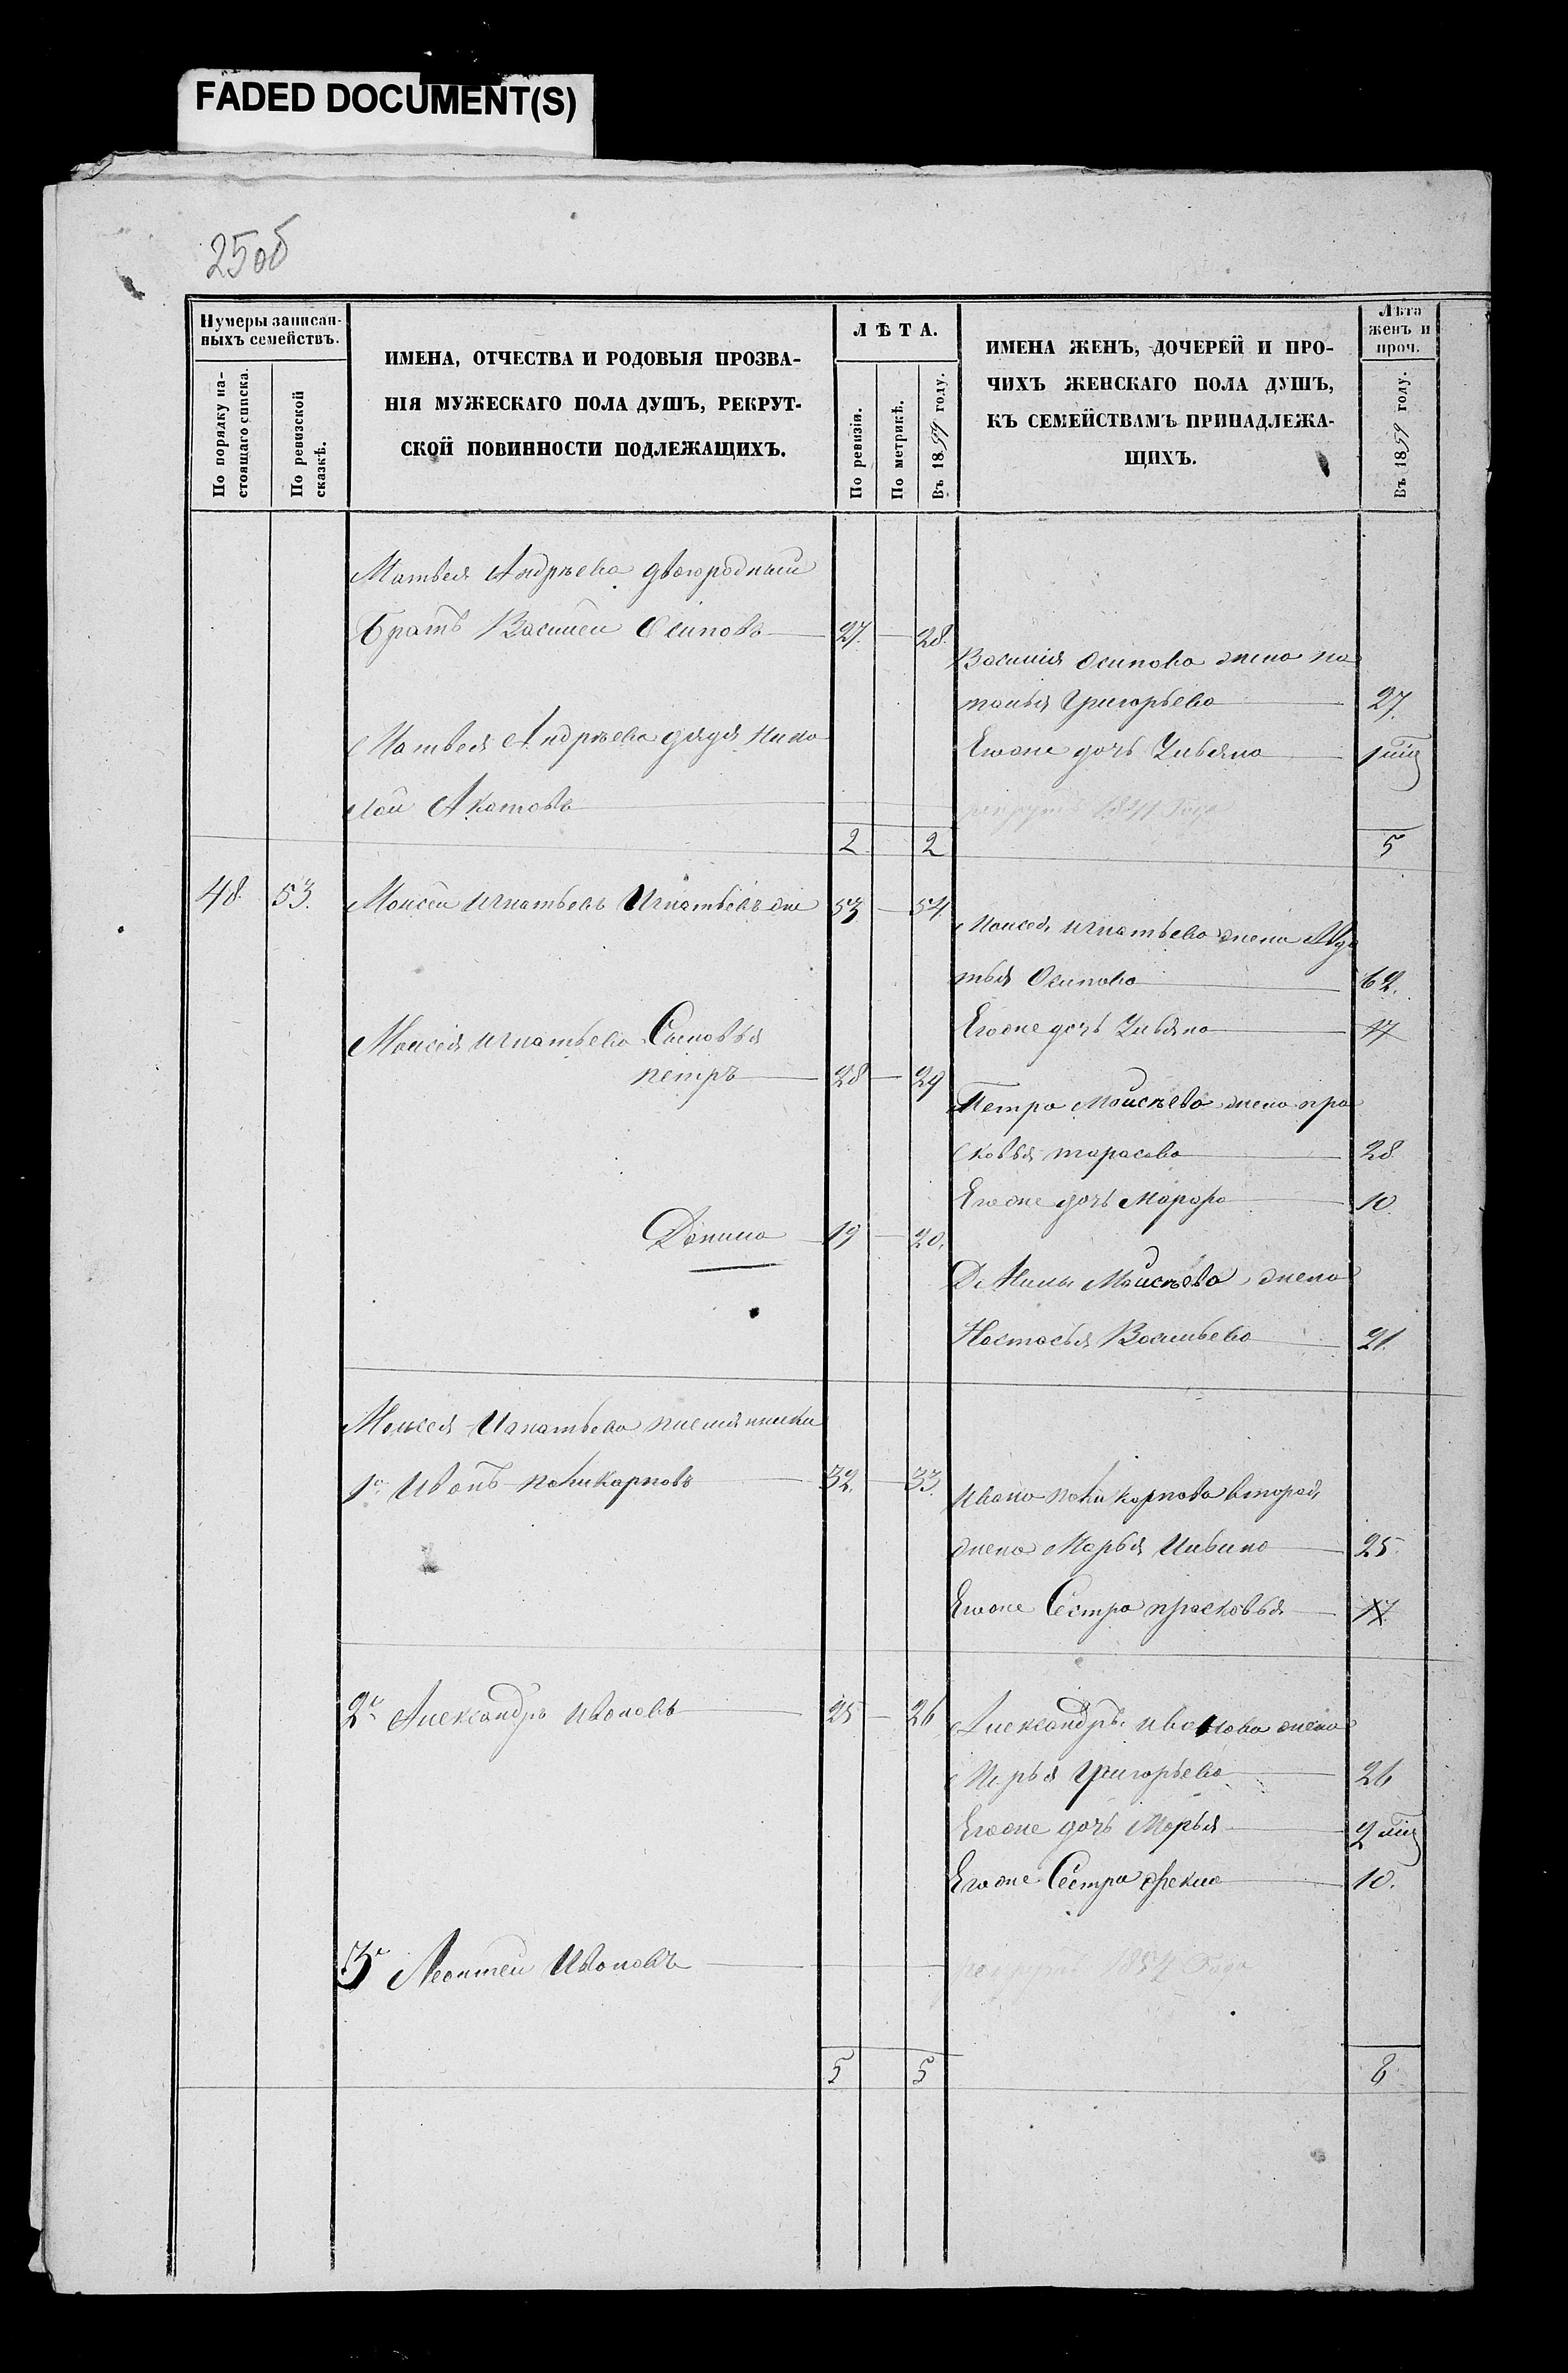 FADED DOCUMENT(S)
25об
Нумеры записан-
ныхъ семействъ.
По порядку на-
стоящаго списка.
По ревизской
сказкѣ.
ИМЕНА, ОТЧЕСТВА И РОДОВЫЯ ПРОЗВА-
НІЯ МУЖЕСКАГО ПОЛА ДУШЪ, РЕКРУТ-
СКОЙ ПОВИННОСТИ ПОДЛЕЖАЩИХЪ.
ЛѢТА.
По ревизіи.
По метрикѣ.
Въ 1859 году.
ИМЕНА ЖЕНЪ, ДОЧЕРЕЙ И ПРО-
ЧИХЪ ЖЕНСКАГО ПОЛА ДУШЪ,
КЪ СЕМЕЙСТВАМЪ ПРИНАДЛЕЖА-
ЩИХЪ.
Лѣта
женъ и
проч.
Въ 1859 году.
Матвея Андрѣева двоюродный
Братъ Василей Осиповъ 27. 28.
Василія Осипова жена На
талья Григорьева 27.
Матвея Андрѣева дядя Нико
Егоже дочь Ульяна 1 мѣц
лай Акатовъ
рекрутъ 1841 Года
2 2 5
48. 53. Моисей Игнатьевъ Игнатьевъ же 53 54.
Моисея Игнатьева жена Авдо
тья Осипова 62.
Егоже дочь Ульяна 17
Моисея Игнатьева Сыновья
петръ 28 29
Петра Моисѣева жена пра
сковья тарасова 28
Егоже дочь Марфа 10
Данила 19 20.
Данилы Моисѣева жена
Настасья Васильева 21.
Моисея Игнатьева племянники
1й Иванъ Поликарповъ 32. 33.
Ивана Поликарпова вторая
жена Марья Ильина 25.
Егоже Сестра прасковья 17.
2й Александръ Ивановъ 25 26
Александръ Иванова жена
Марья Григорьева 26
Егоже дочь Марья 2 мѣц
Егоже Сестра Фекла 10.
3й Леонтей Ивановъ
рекрутъ 1854 Года
5 5 8